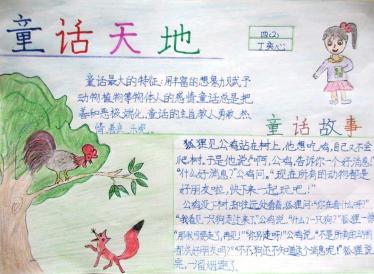 童话天地
四(2)
丁英心
童话最大的特征:用丰富的想象力赋予
动物植物等物体人的感情童话总是把
善和恶极端化,童话的主旨教人勇敢、热
情、善良、乐观
童话故事
狐狸见公鸡站在树上,他想吃鸡,自己又不会
爬树,于是他说:“啊,公鸡,告诉你一个好消息!”
“什么好消息?”公鸡问。“现在所有的动物都是
好朋友啦,快下来一起玩吧!”
公鸡没下树,却往远处看着,狐狸问:“你在看什么呀?”
“我看见一只狗走过来了,”公鸡说。“什么?一只狗?”狐狸一惊
“那我可要走了,再见!”“你别走呀!”公鸡说,“不是所有的动物
都是好朋友吗?”“不,不,狗还不知道这个消息呢!”狐狸说
完,一溜烟跑了